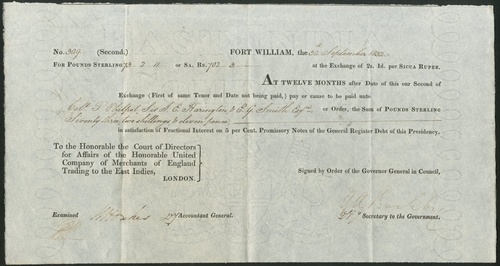 No. 309 (Second.) FORT WILLIAM, the 30 September 1832
FOR POUNDS STERLING 73 2 11 or SA. RS. 702 3
at the Exchange of 2s. 1d. per SICCA RUPEE.
AT TWELVE MONTHS after Date of this our Second of
Exchange (First of same Tenor and Date not being paid,) pay or cause to be paid unto
Harington & E. G. Smith Esqrs or Order, the Sum of POUNDS STERLING
Seventy three two shillings & eleven pence
in satisfaction of Fractional Interest on 5 per Cent. Promissory Notes of the General Register Debt of this Presidency.
To the Honorable the Court of Directors
for Affairs of the Honorable United
Company of Merchants of England
Trading to the East Indies,
LONDON.
Signed by Order of the Governor General in Council,
Examined Accountant General.
Secretary to the Government.